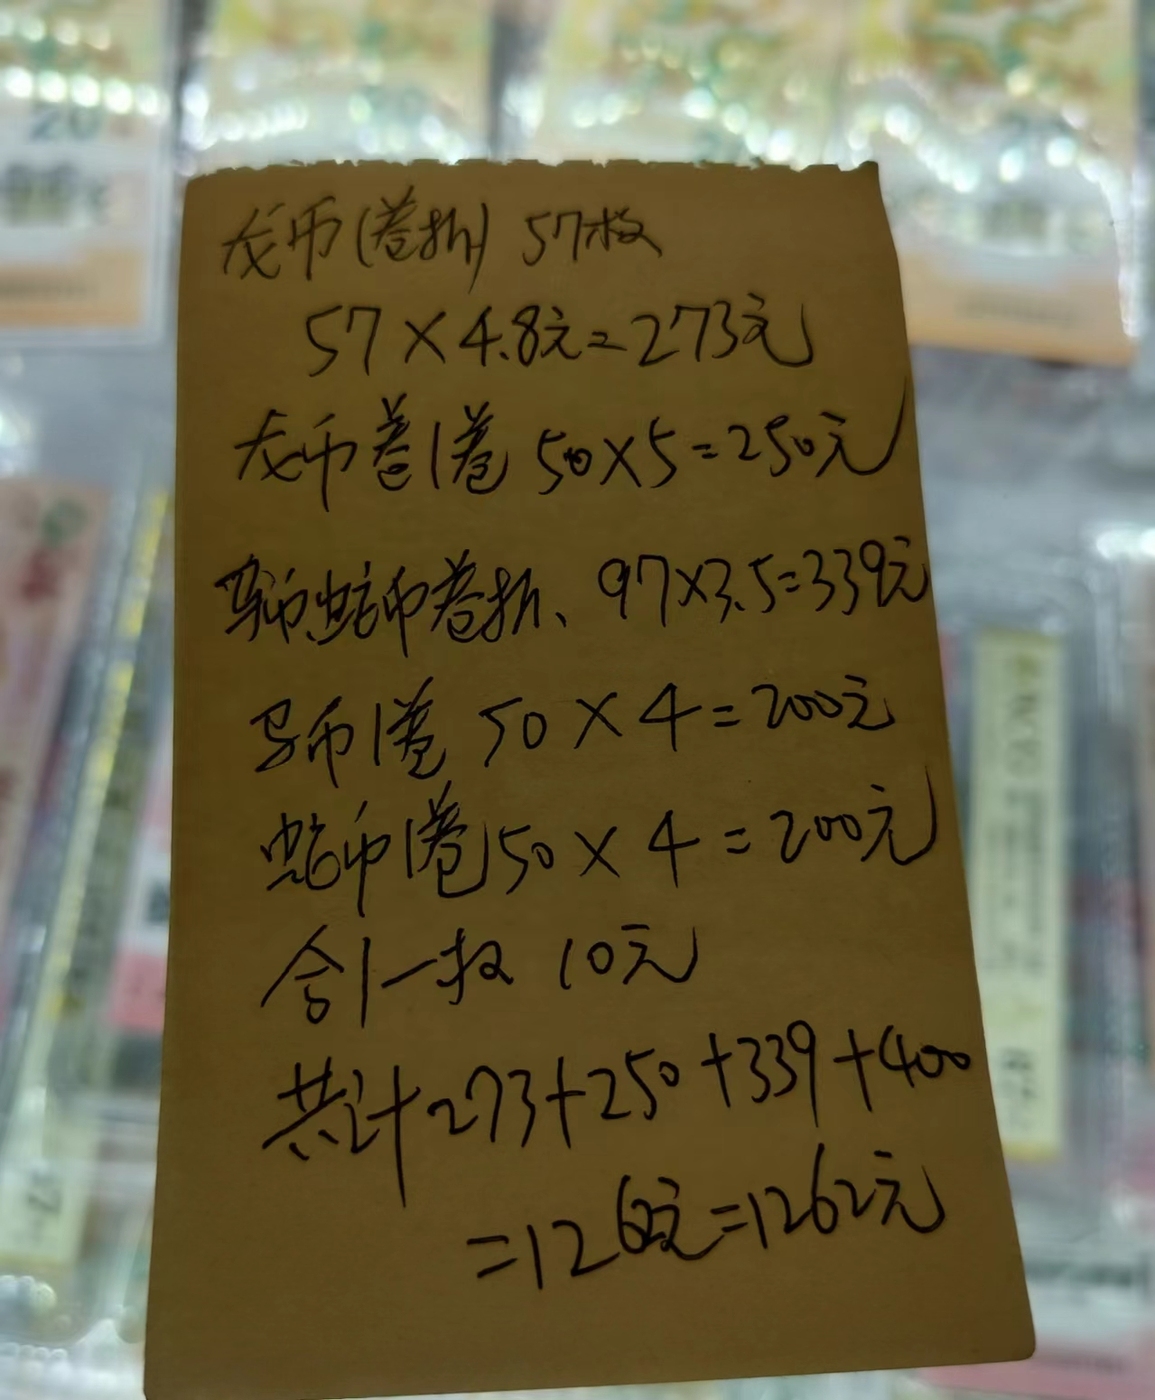 龙币(卷拆) 57枚
57×4.8元=273元
龙币卷1卷 50×5=250元
马币、蛇币卷拆、97×3.5=339元
马币1卷 50×4=200元
蛇币1卷50×4=200元
一枚 10元
共计273+250+339+400
=1262元=1262元